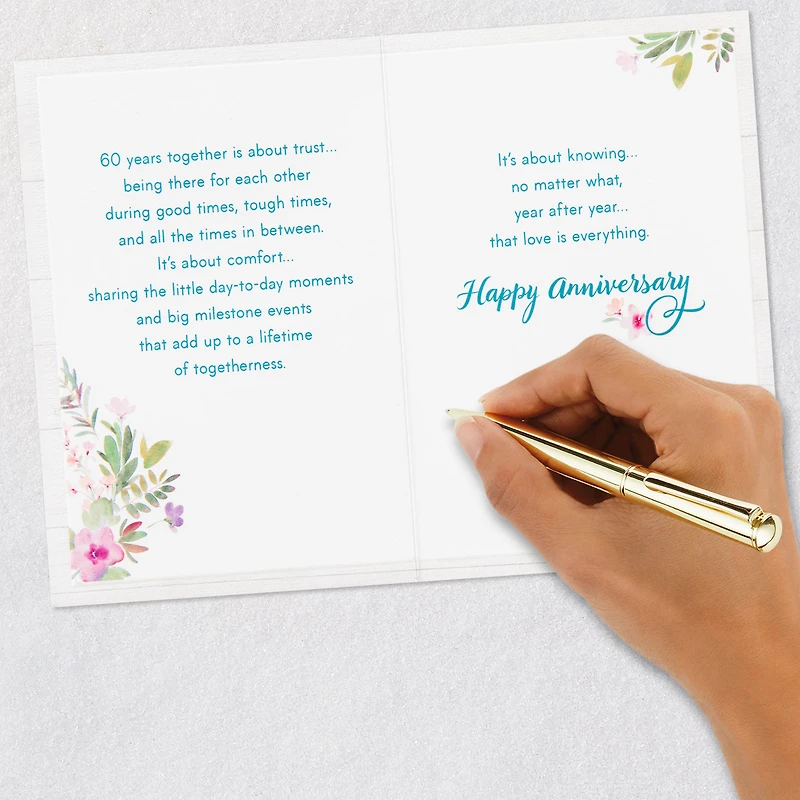 60 years together is about trust...
being there for each other
during good times, tough times,
and all the times in between.
It's about comfort...
sharing the little day-to-day moments
and big milestone events
that add up to a lifetime
of togetherness.
It's about knowing...
no matter what,
year after year...
that love is everything.
Happy Anniversary